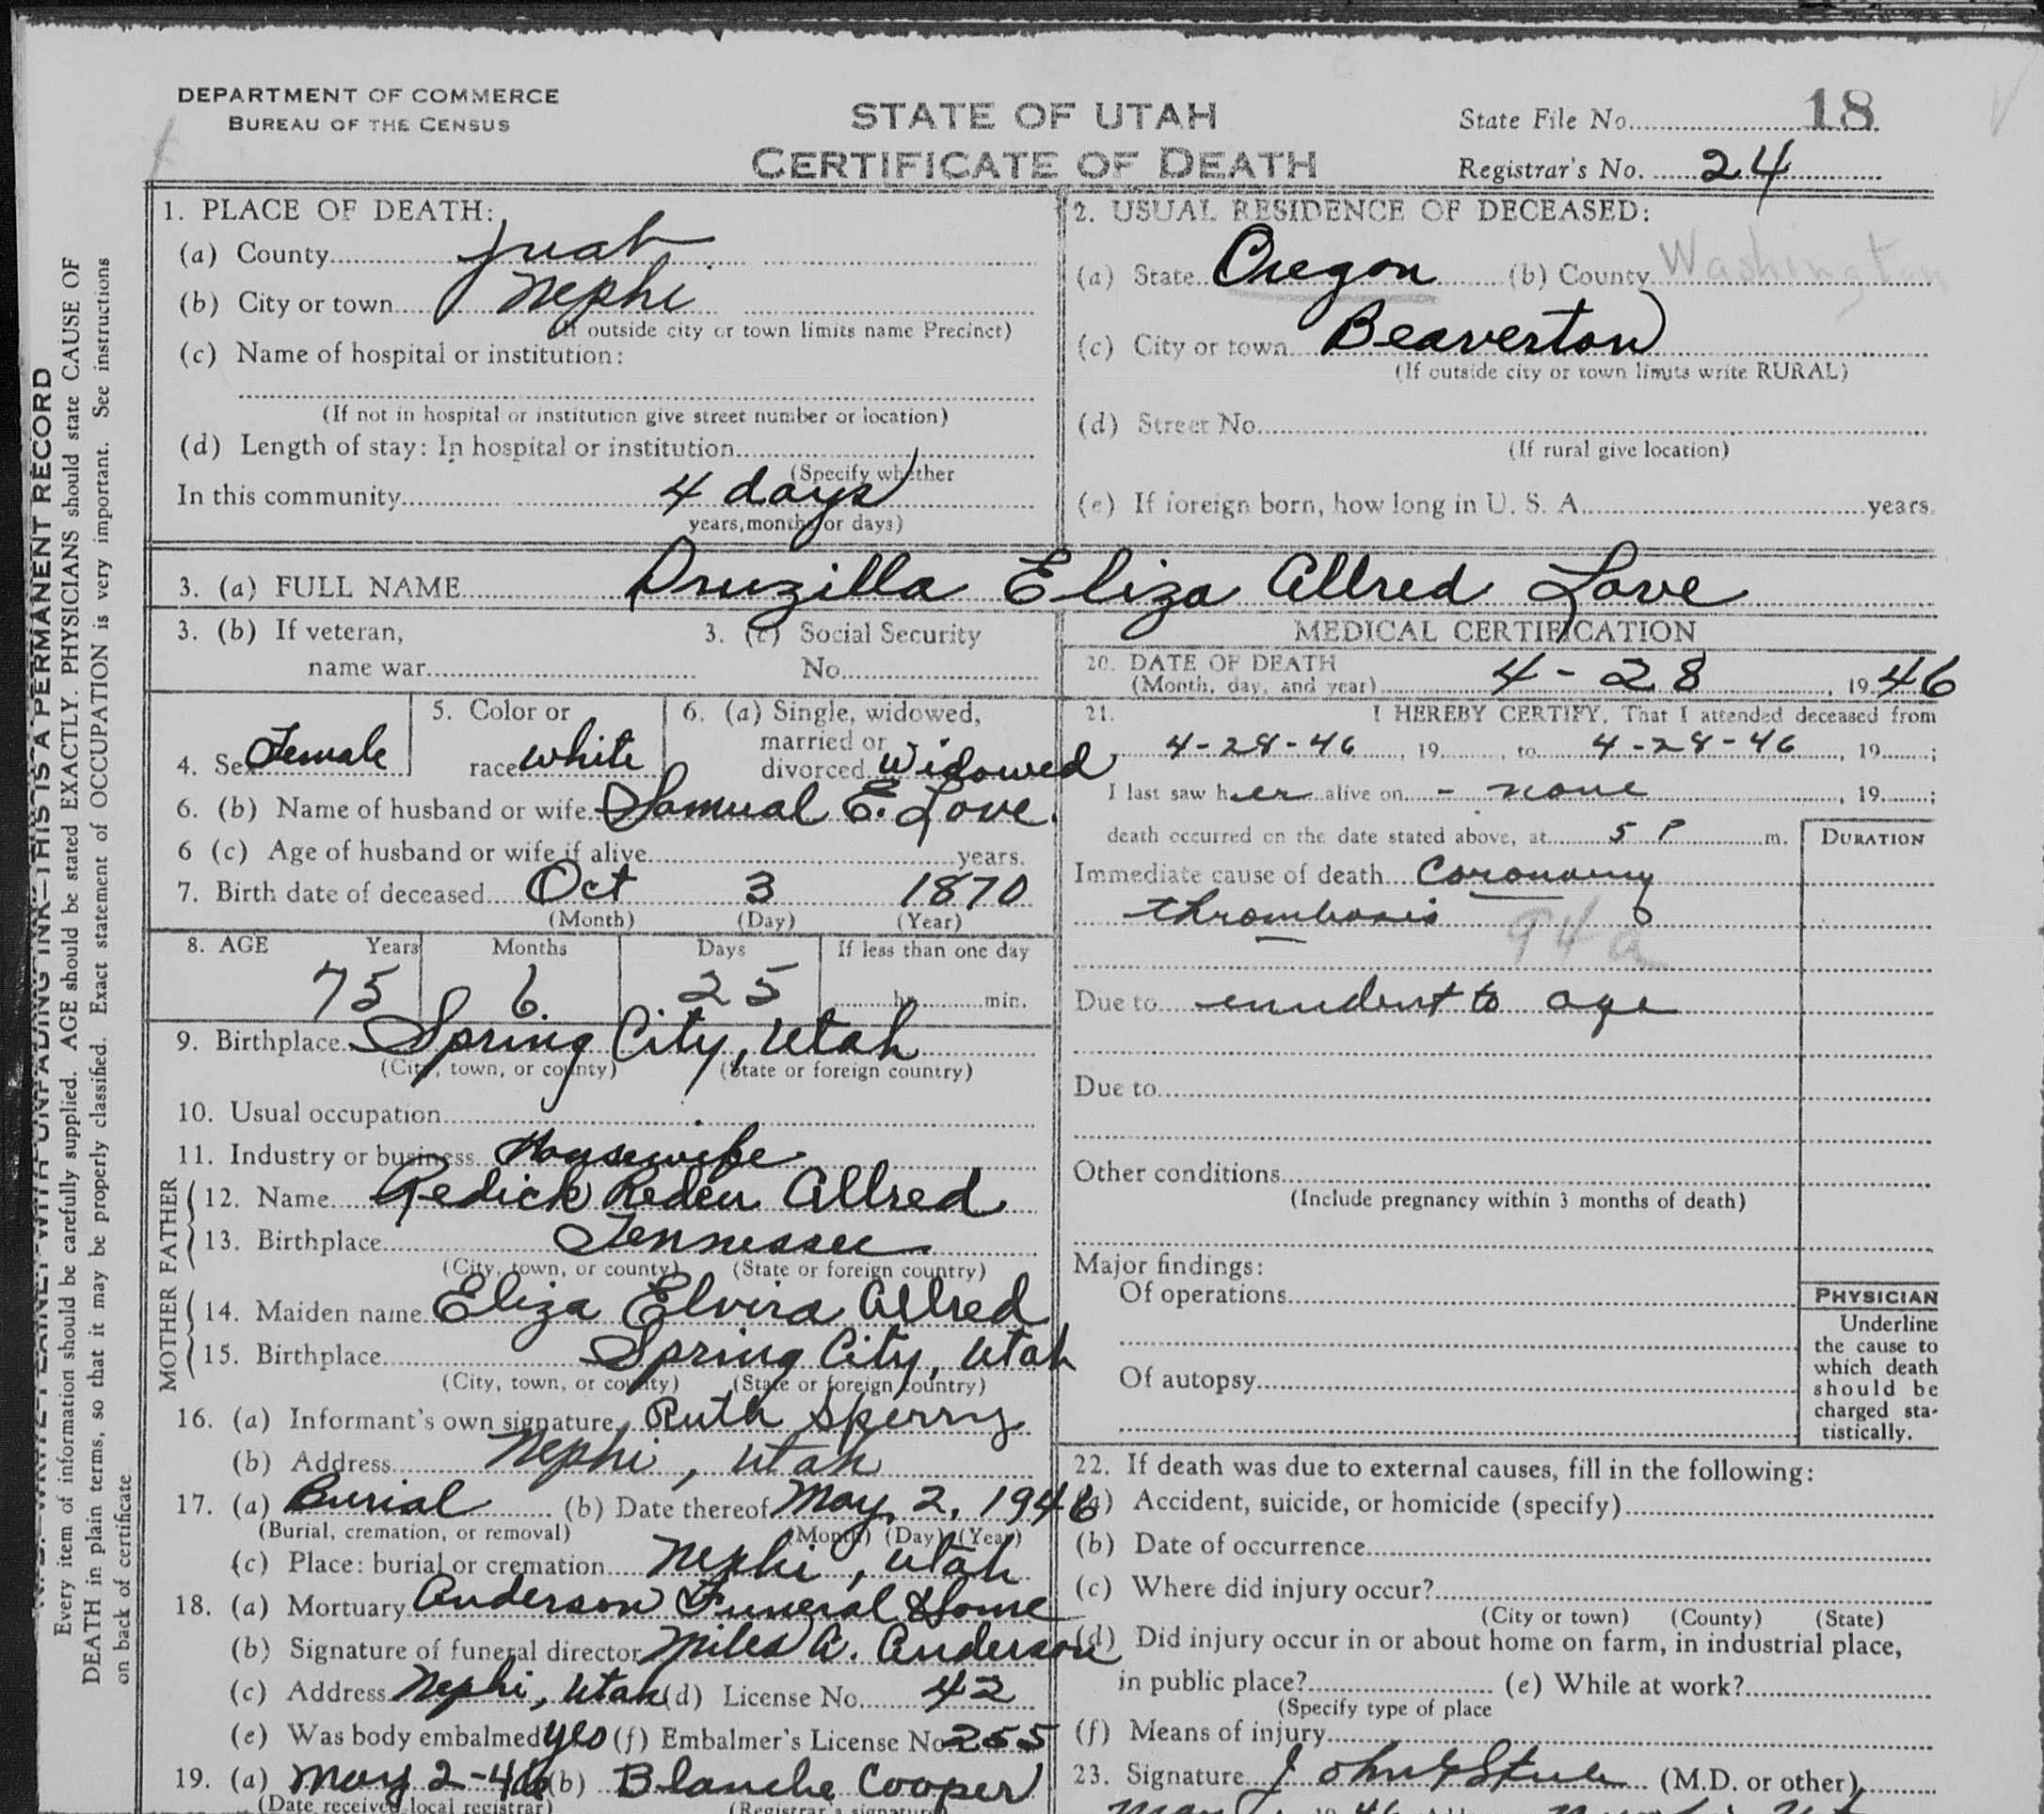 DEPARTMENT OF COMMERCE
BUREAU OF THE CENSUS
STATE OF UTAH
CERTIFICATE OF DEATH
State File No. 18
Registrar's No. 24
1. PLACE OF DEATH:
(a) County Juab
(b) City or town Nephi
(If outside city or town limits name Precinct)
(c) Name of hospital or institution:
(If not in hospital or institution give street number or location)
(d) Length of stay: In hospital or institution
(Specify whether
In this community 4 days
years, months or days)
2. USUAL RESIDENCE OF DECEASED:
(a) State Oregon (b) County Washington
(c) City or town Beaverton
(If outside city or town limits write RURAL)
(d) Street No.
(If rural give location)
(e) If foreign born, how long in U. S. A. years.
3. (a) FULL NAME Druzilla Eliza Allred Love
3. (b) If veteran,
name war
3. (c) Social Security
No.
4. Sex Female
5. Color or
race white
6. (a) Single, widowed,
married or
divorced Widowed
6. (b) Name of husband or wife Samual E. Love.
6 (c) Age of husband or wife if alive years.
7. Birth date of deceased Oct 3 1870
(Month) (Day) (Year)
8. AGE Years Months Days If less than one day
75 6 25 hr. min.
9. Birthplace Spring City, Utah
(City, town, or county) (State or foreign country)
10. Usual occupation
11. Industry or business Housewife
FATHER
12. Name Redick Reden Allred
13. Birthplace Tennessee
(City, town, or county) (State or foreign country)
MOTHER
14. Maiden name Eliza Elvira Allred
15. Birthplace Spring City, Utah
(City, town, or county) (State or foreign country)
16. (a) Informant's own signature Ruth Sperry
(b) Address Nephi, Utah
17. (a) Burial (b) Date thereof May 2, 1946
(Burial, cremation, or removal) (Month) (Day) (Year)
(c) Place: burial or cremation Nephi, Utah
18. (a) Mortuary Anderson Funeral Home
(b) Signature of funeral director Miles A. Anderson
(c) Address Nephi, Utah (d) License No. 42
(e) Was body embalmed yes (f) Embalmer's License No. 255
19. (a) May 2-46 (b) Blanche Cooper
(Date received local registrar) (Registrar's signature)
MEDICAL CERTIFICATION
20. DATE OF DEATH
(Month, day, and year) 4-28, 1946
21. I HEREBY CERTIFY, That I attended deceased from
4-28-46, 19 , to 4-28-46, 19 ;
I last saw her alive on - none, 19 ;
death occurred on the date stated above, at 5 P m.
DURATION
Immediate cause of death Coronary
thrombosis 94a
Due to to age
Due to
Other conditions
(Include pregnancy within 3 months of death)
Major findings:
Of operations
Of autopsy
PHYSICIAN
Underline
the cause to
which death
should be
charged sta-
tistically.
22. If death was due to external causes, fill in the following:
(a) Accident, suicide, or homicide (specify)
(b) Date of occurrence
(c) Where did injury occur?
(City or town) (County) (State)
(d) Did injury occur in or about home on farm, in industrial place,
in public place? (e) While at work?
(Specify type of place
(f) Means of injury
23. Signature John (M.D. or other)
THIS IS A PERMANENT RECORD
Every item of information should be carefully supplied. AGE should be stated EXACTLY. PHYSICIANS should state CAUSE OF
DEATH in plain terms, so that it may be properly classified. Exact statement of OCCUPATION is very important. See instructions
on back of certificate